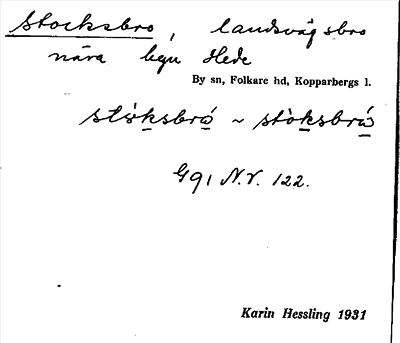 Stocksbro, landsvägsbro
nära byn Hede
By sn, Folkare hd, Kopparbergs l.
stòksbró ~ stòksbró
G91 N.V. 122.
Karin Hessling 1931